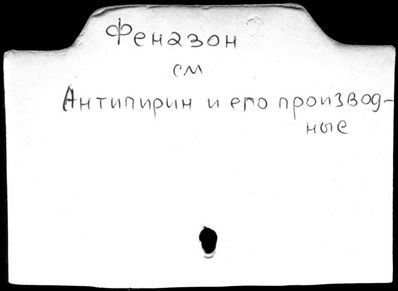 Феназон
см
Антипирин и его производ-
ные